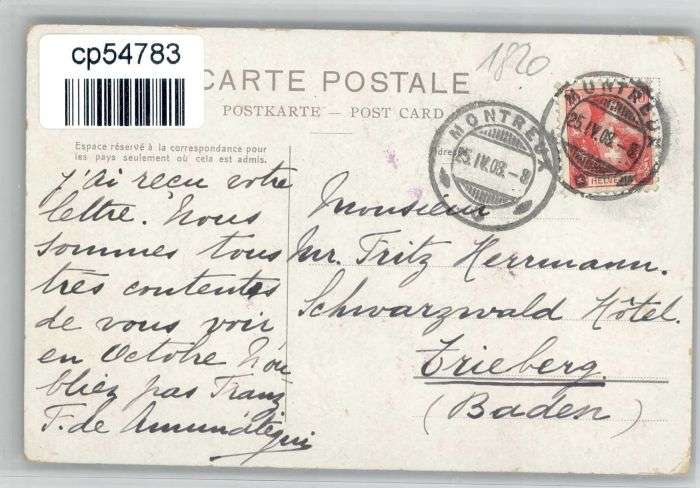 cp54783
1820
CARTE POSTALE
POSTKARTE – POST CARD
Espace réservé à la correspondance pour
les pays seulement où cela est admis.
MONTREUX
25.IV.08.-8
MONTREUX
25.IV.08.-8
HELVETIA
j'ai reçu votre
lettre. Nous
sommes tous
très contents
de vous voir
en Octobre N'ou
bliez pas Franz
F. de Amunátegui
Monsieur
Mr. Fritz Herrmann.
Schwarzwald Hôtel.
Trieberg
(Baden)